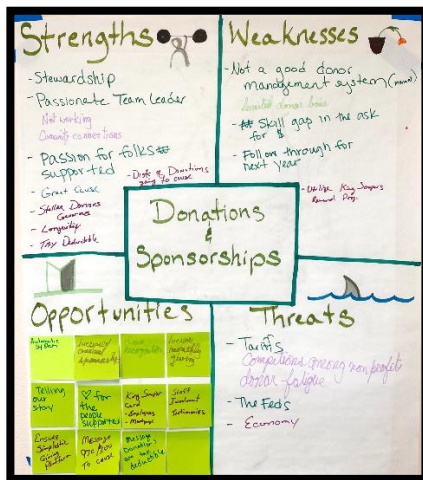 Strengths
- Stewardship
- Passionate Team Leader
Networking
Community connections
- Passion for folks
supported
- Great Cause
- Stellar Donors
- Longevity
- Tax Deductible
- Distr of Donations
going to cause
Weaknesses
- Not a good donor
management system (manual)
limited donor base
- Skill gap in the ask
for $
- Follow through for
next year
- Utilize King Soopers
Reward Prog.
Donations
&
Sponsorships
Opportunities
Automatic
System
Increase
sponsorship
Increase
monthly
giving
Telling
our
story
♡ for
the
people
supported
King Sooper
Card
- Employees
Staff
Involvement
Testimonies
Ensure
Simplistic
Giving
Platform
Message
to cause
Message
Donations
are tax
deductible
Threats
- Tariffs
Competitions among nonprofits
donor fatigue
- The Feds
- Economy